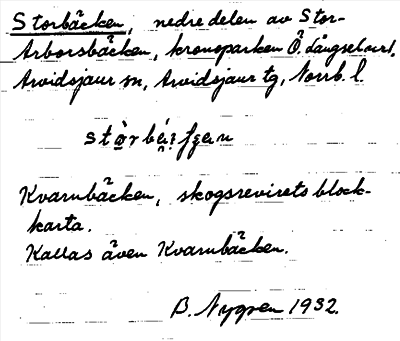 Storbäcken, nedre delen av Stor-
Arborsbäcken, kronoparken Ö. Långselnot.
Arvidsjaur sn, Arvidsjaur tg, Norrb. l.
Kvarnbäcken, skogsrevirets block-
karta.
Kallas även Kvarnbäcken.
B. Nygren 1932.